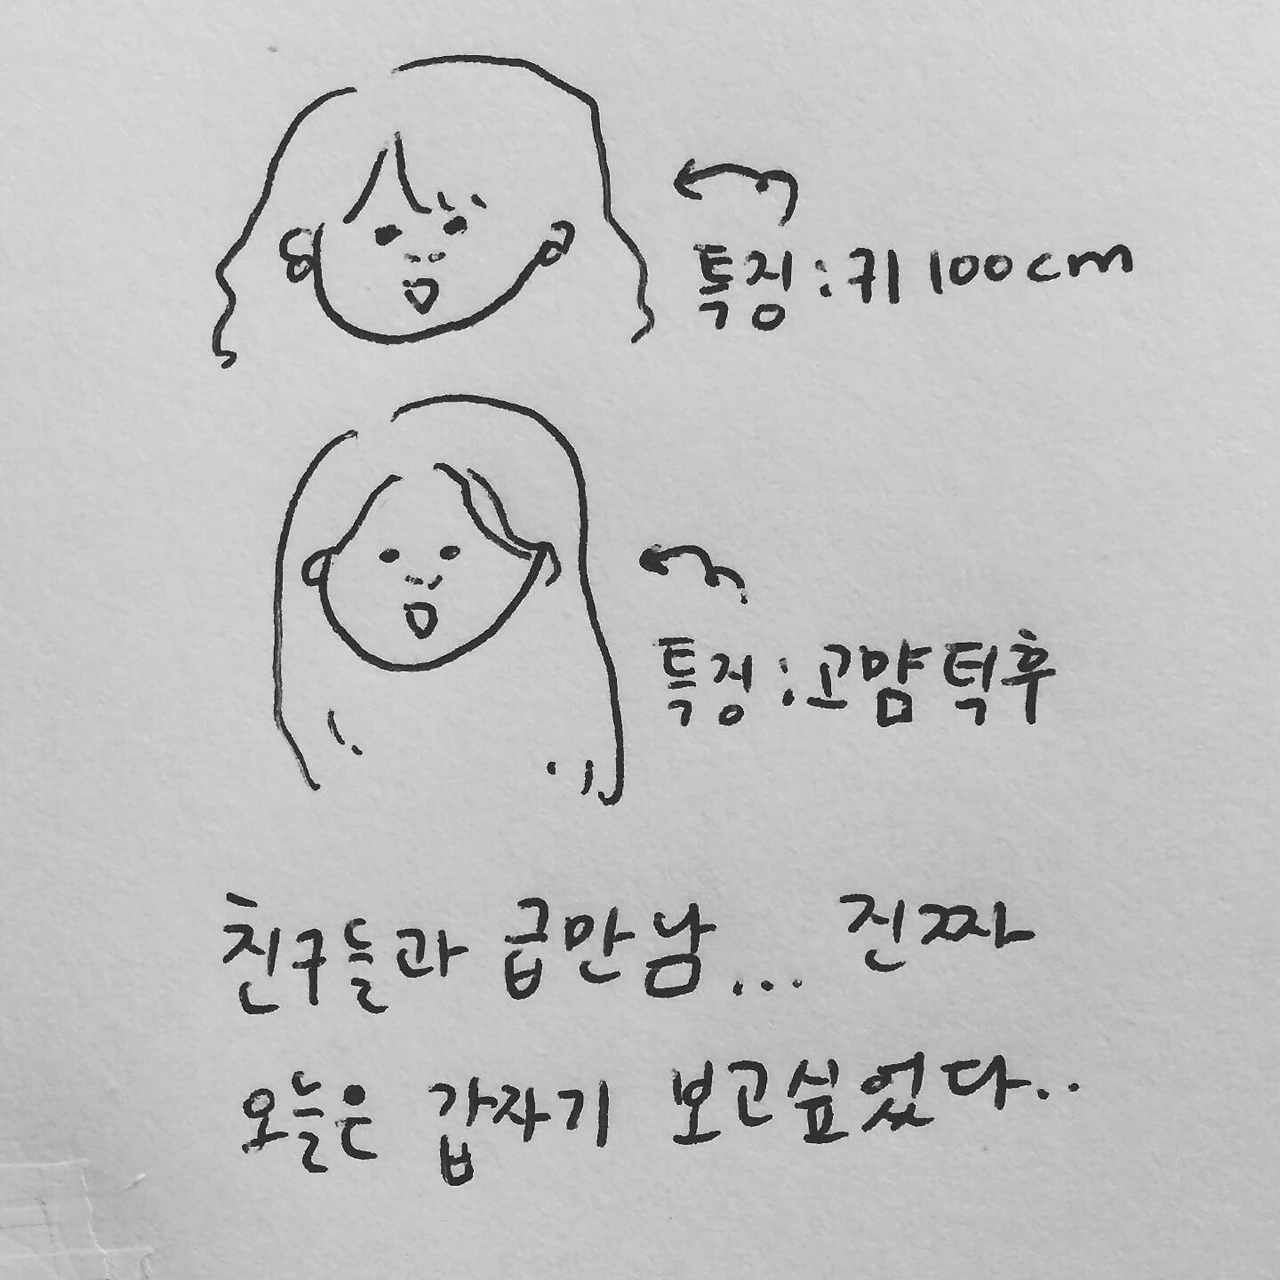 특징:키 100cm
특징:고먐 턱후
친구들과 급만남... 진짜
오늘은 갑자기 보고싶었다..